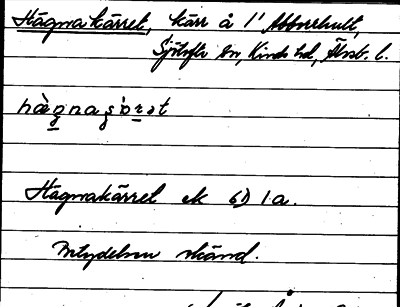 Hägnakärret, kärr å 1' Abborrhult,
Sjötofta sn, Kinds hd, Älvsb. l.
hägnaʂɒrət
Hägnakärret ek 6) 1a.
Betydelsen okänd.